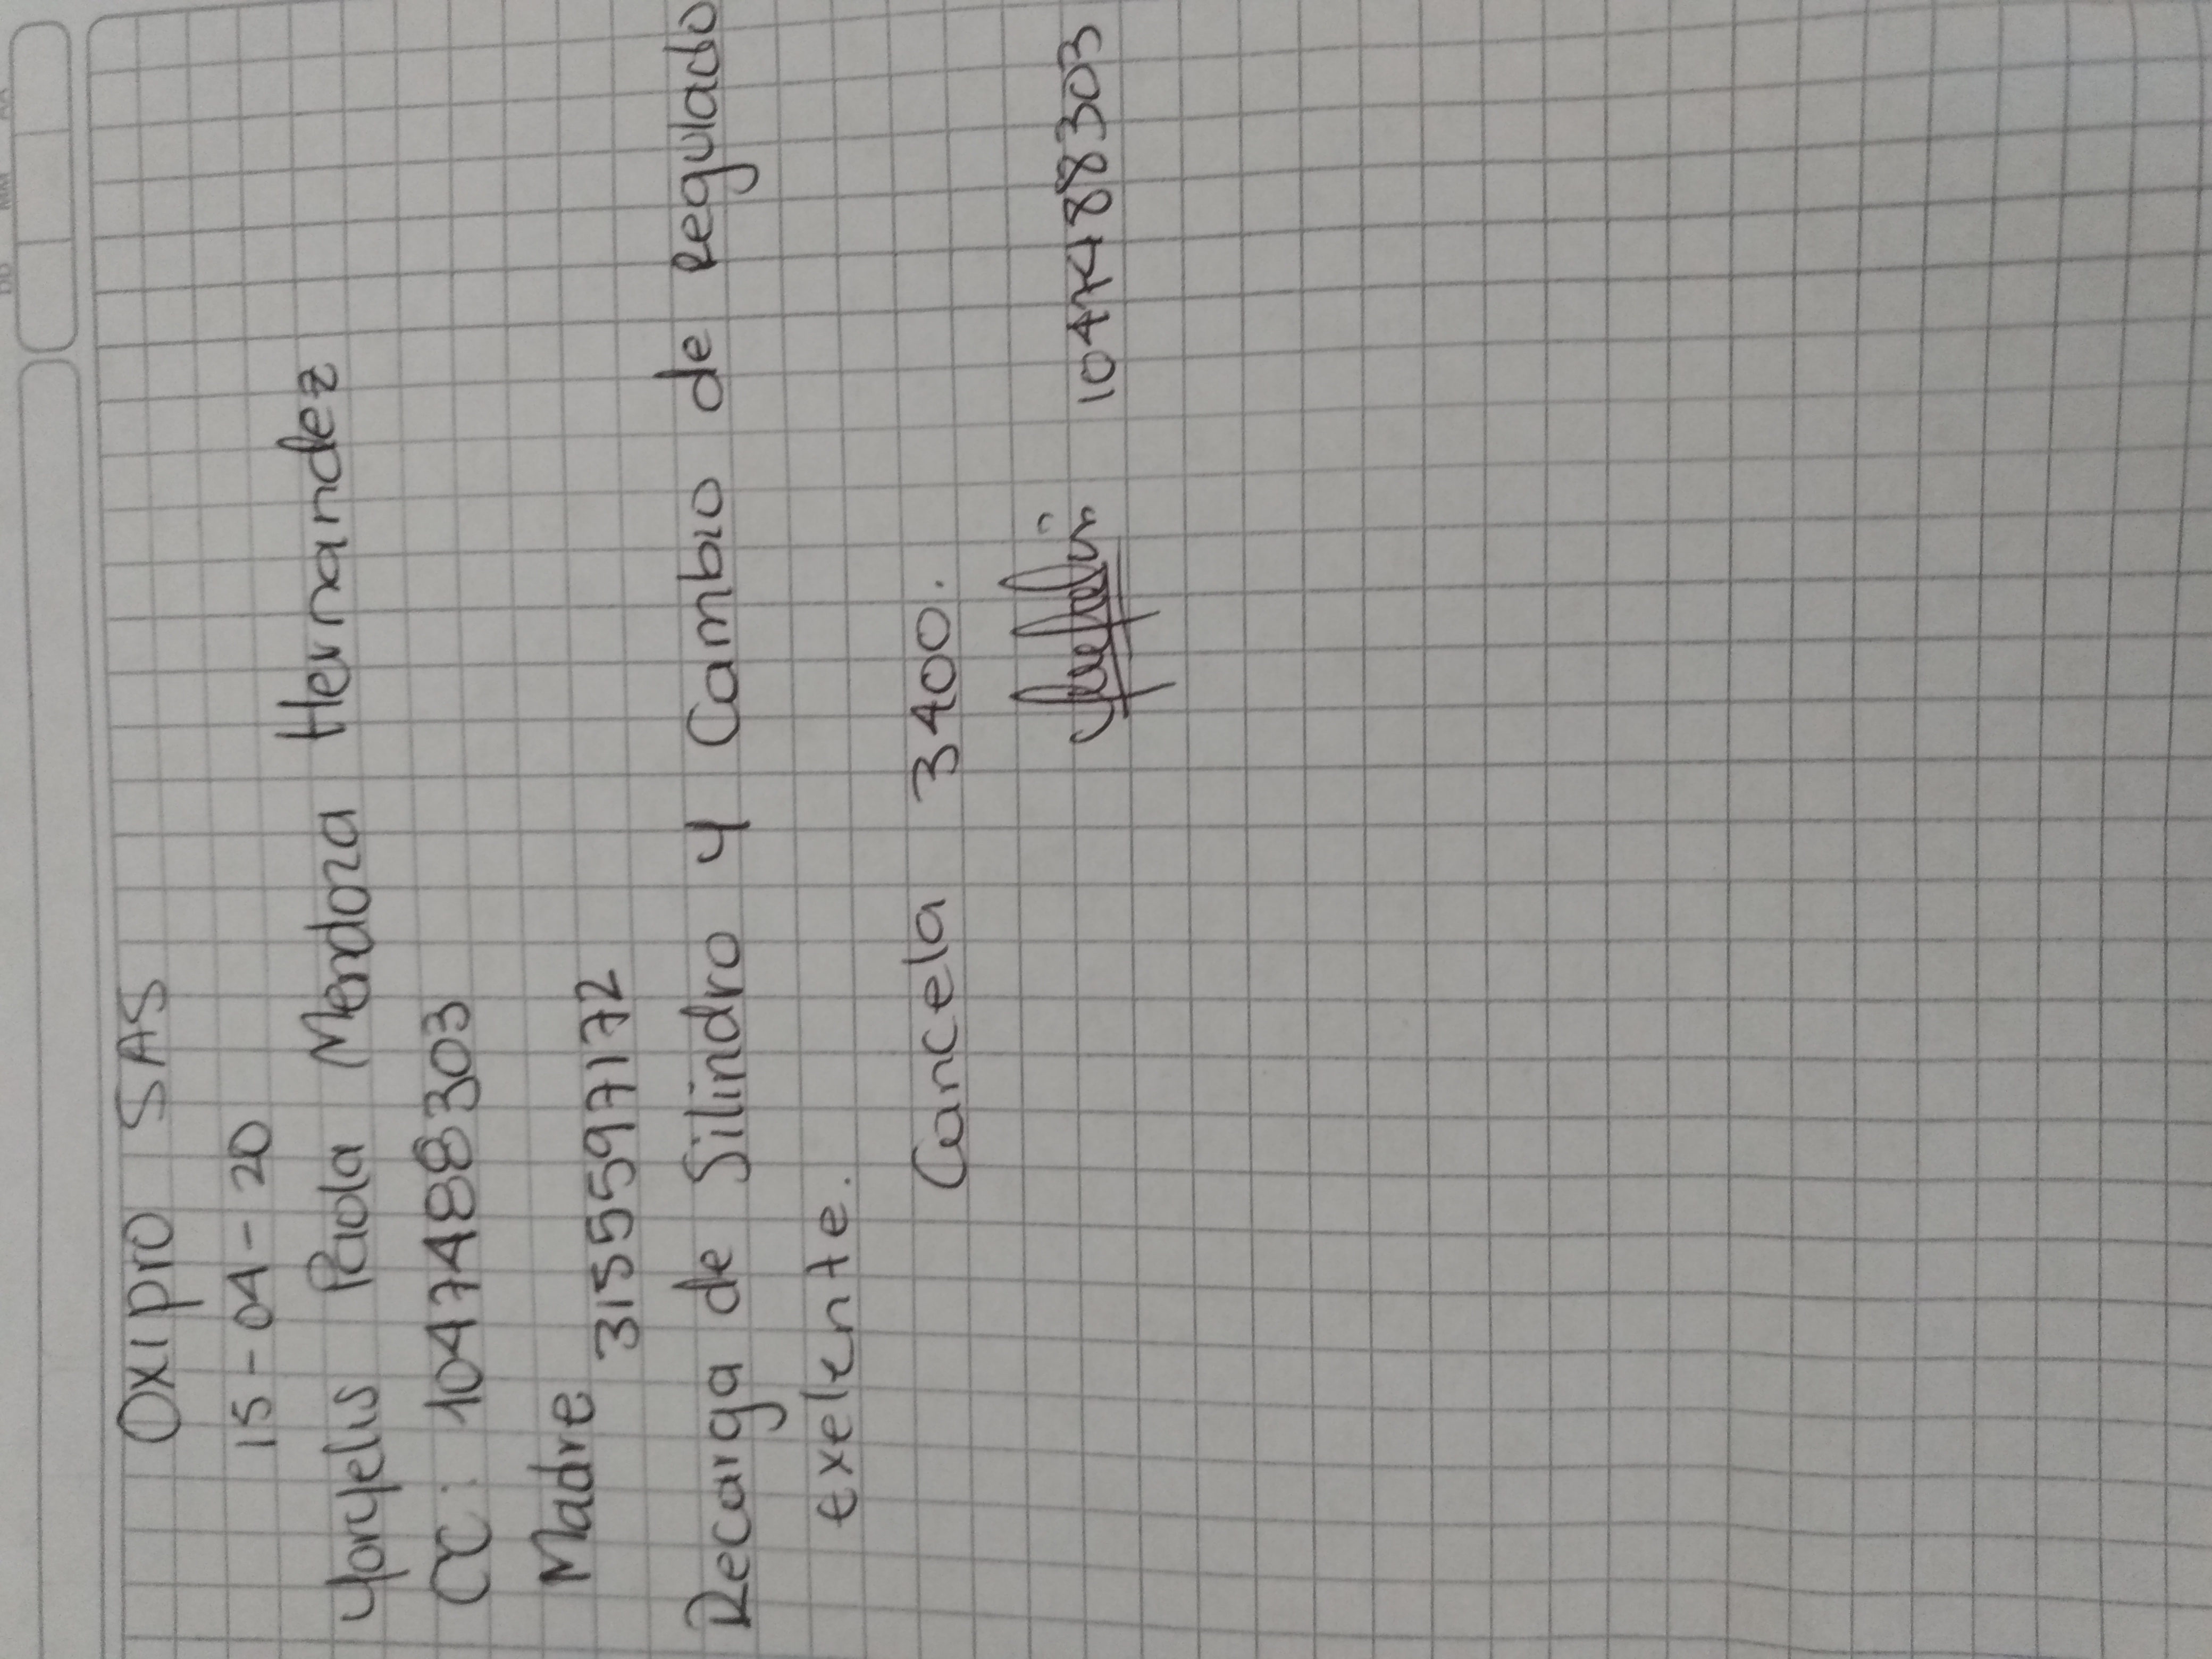 Oxipro SAS
15-04-20
Yoryelis Paola Mendoza Hernandez
CC: 1047488303
Madre
3155597172
Recarga de Silindro y Cambio de Regulado
exelente.
Cancela 3400.
1047488303